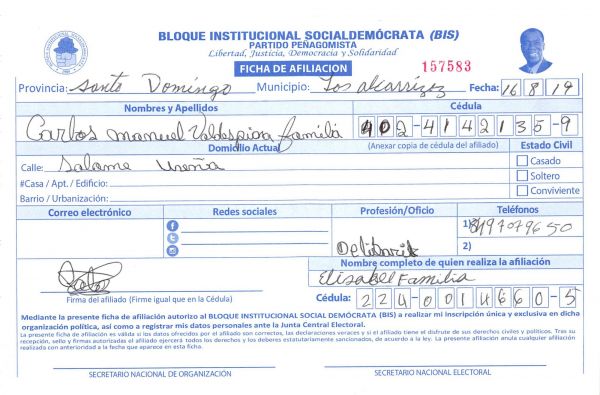 BLOQUE INSTITUCIONAL SOCIALDEMÓCRATA (BIS)
PARTIDO PEÑAGOMISTA
Libertad, Justicia, Democracia y Solidaridad
FICHA DE AFILIACION
157583
Provincia: Santo Domingo Municipio: Los alcarrizoz Fecha: 16 8 19
Nombres y Apellidos Cédula
Carlos manuel Valdespina familia 402-4142135-9
Domicilio Actual (Anexar copia de cédula del afiliado) Estado Civil
Calle: Salome Ureña Casado
#Casa / Apt. / Edificio: Soltero
Barrio / Urbanización: Conviviente
Correo electrónico Redes sociales Profesión/Oficio Teléfonos
1) 8497079650
2)
Nombre completo de quien realiza la afiliación
Elisabel Familia
Firma del afiliado (Firme igual que en la Cédula) Cédula: 224-0014660-5
Mediante la presente ficha de afiliación autorizo al BLOQUE INSTITUCIONAL SOCIAL DEMÓCRATA (BIS) a realizar mi inscripción única y exclusiva en dicha
organización política, así como a registrar mis datos personales ante la Junta Central Electoral.
La presente ficha de afiliación es válida si los datos ofrecidos por el afiliado son correctos, las declaraciones veraces y si el afiliado tiene el disfrute de sus derechos civiles y políticos. Tras su
recepción, sello y firmas autorizadas el afiliado ejercerá todos los derechos y los deberes estatutariamente sancionados, de acuerdo a la ley. La presente afiliación anula cualquier afiliación
realizada con anterioridad a la fecha que aparece en esta ficha.
SECRETARIO NACIONAL DE ORGANIZACIÓN SECRETARIO NACIONAL ELECTORAL